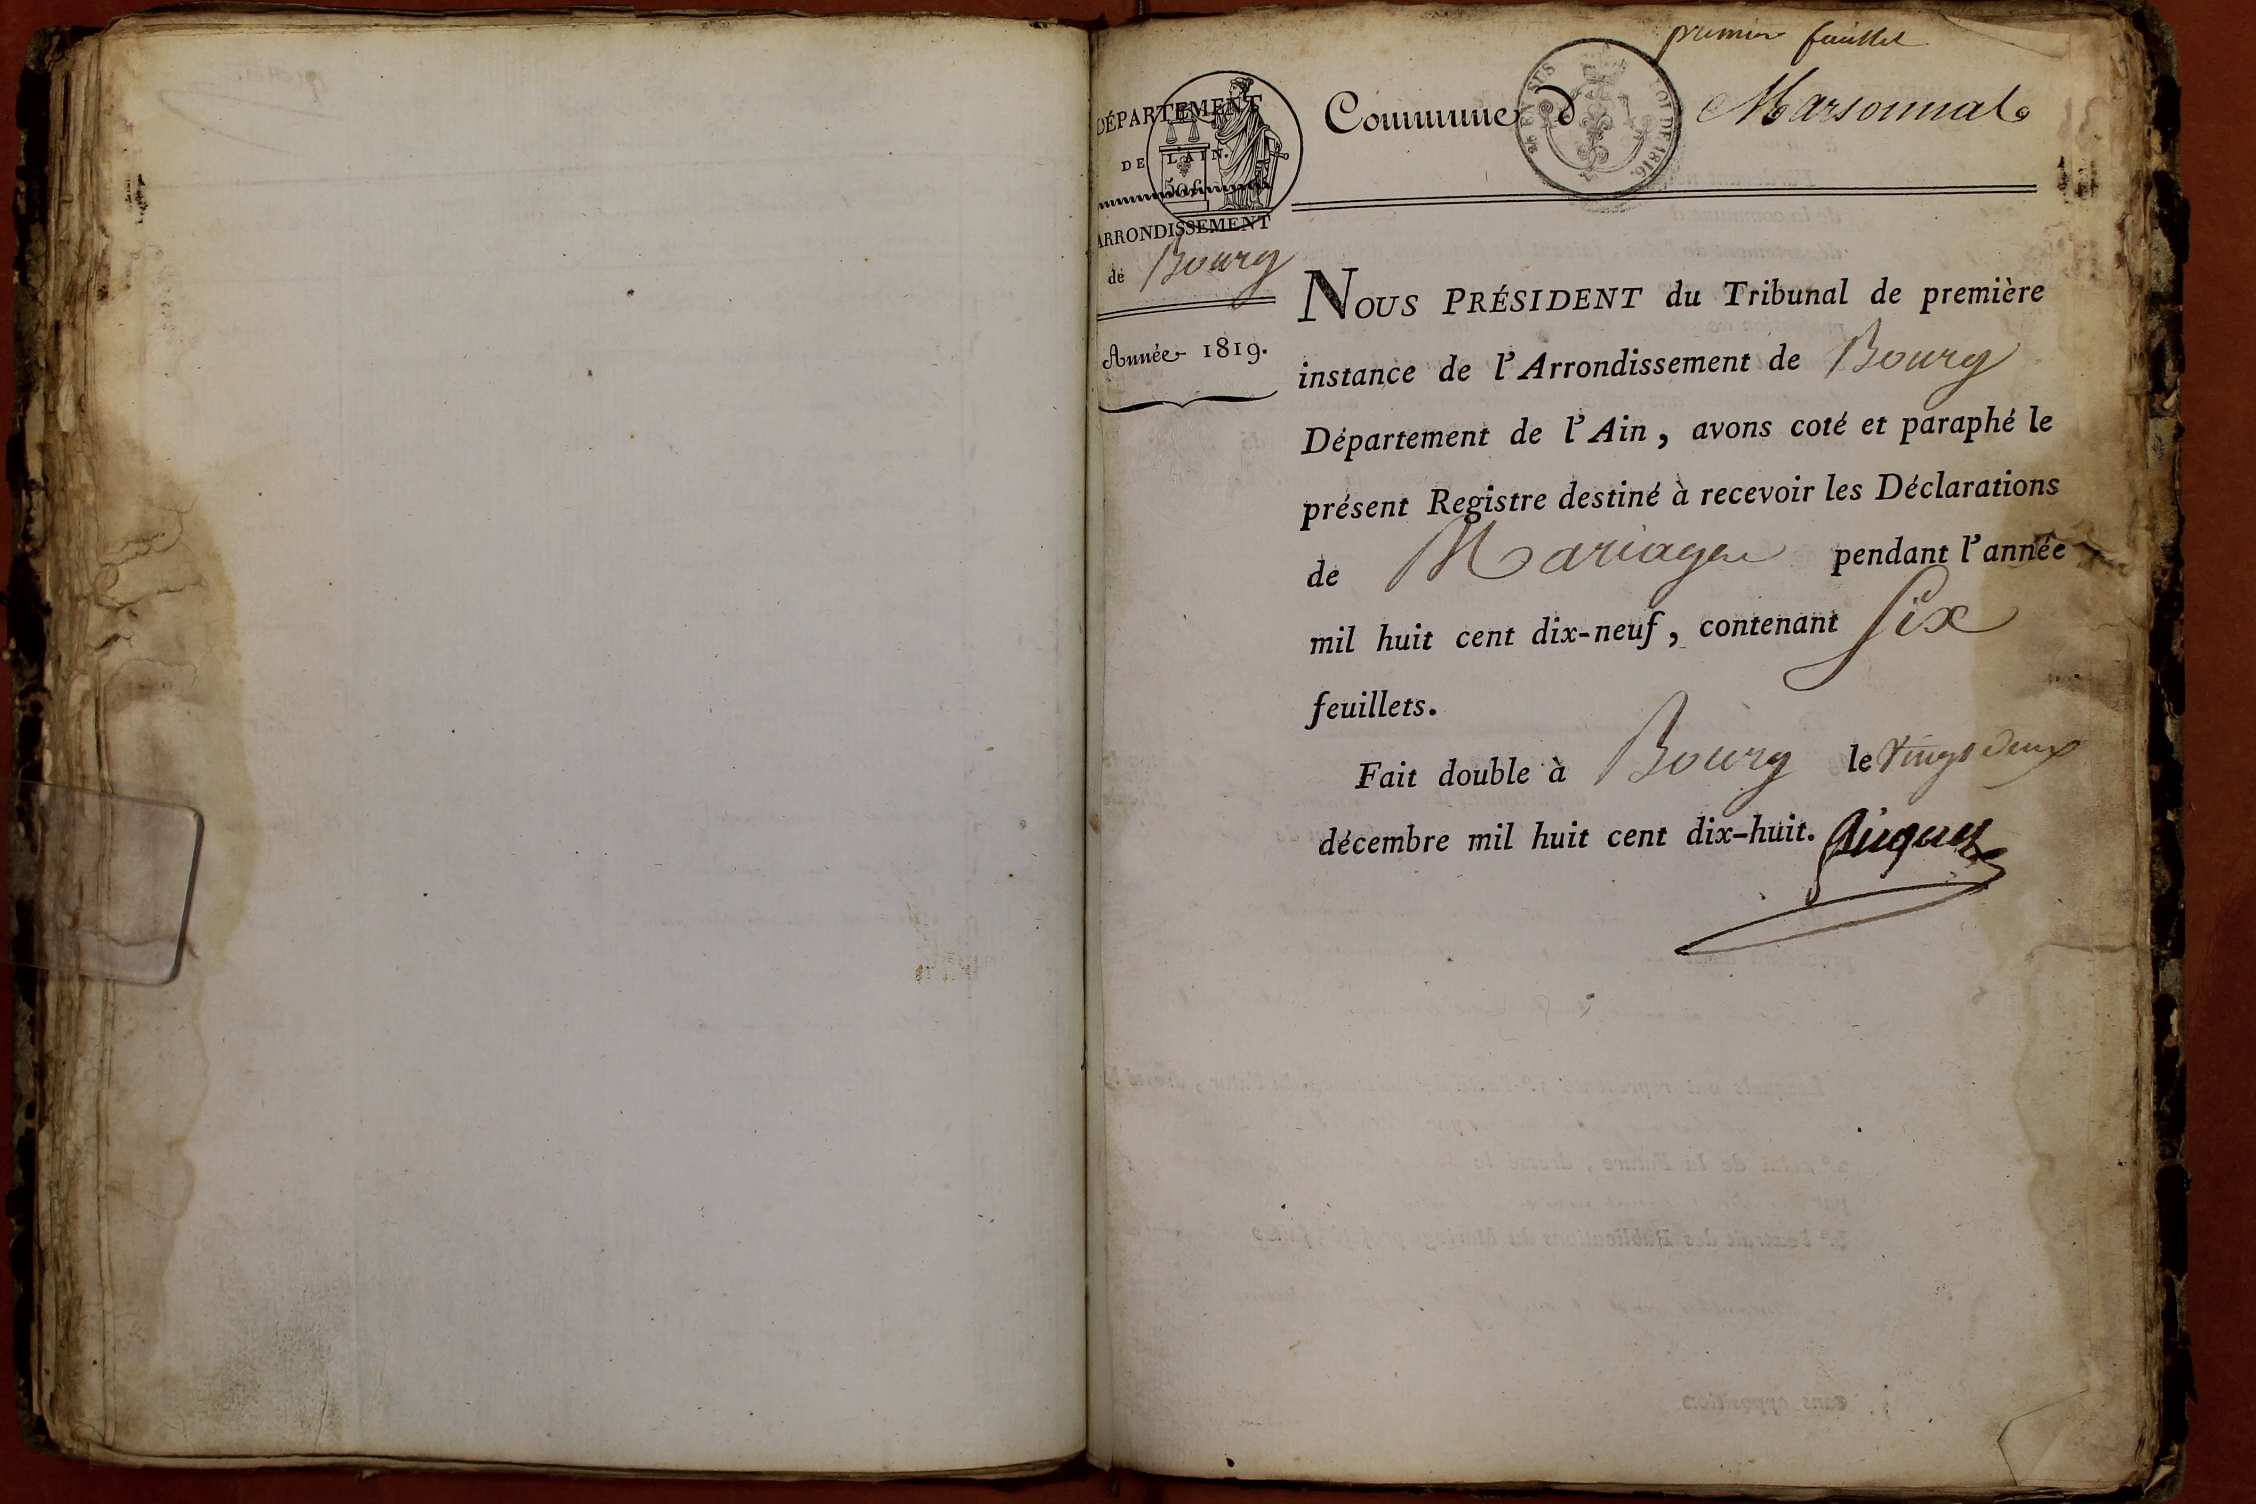 premier feuillet
DÉPARTEMENT
DE L'AIN.
50 c
ARRONDISSEMENT
de Bourg
Année 1819.
Commune d Marsonnat
EN SUS
LOI DE 1816.
NOUS PRÉSIDENT du Tribunal de première
instance de l'Arrondissement de Bourg
Département de l'Ain, avons coté et paraphé le
présent Registre destiné à recevoir les Déclarations
de Mariage pendant l'année
mil huit cent dix-neuf, contenant Six
feuillets.
Fait double à Bourg le Vingt Deux
décembre mil huit cent dix-huit.